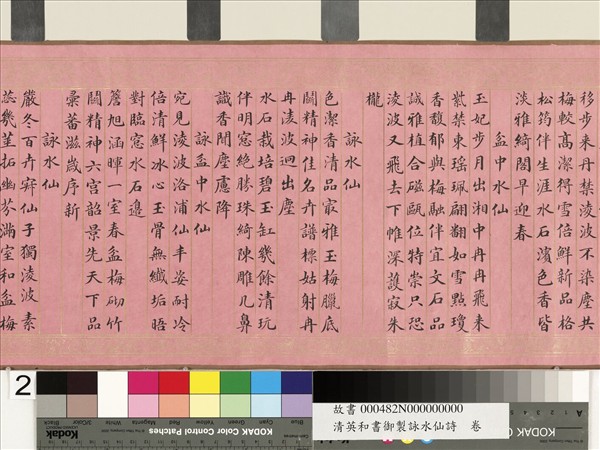 移步来丹禁淩波不染塵共
梅較高潔得雪倍鮮新品格
松筠伴生涯水石濱色香皆
淡雅綺閣早迎春
盆中水仙
玉妃步月出湘中冉冉飛来
紫禁東瑶珮翩翻如雪點瓊
香馥郁與梅融伴宜文石品
誠雅植合磁甌位特崇只恐
淩波又飛去下帷深護寂朱
櫳
詠水仙
色潔香清品最雅玉梅臘底
鬪精神佳名卉譜標姑射冉
冉淩波迥出塵
水石栽培碧玉缸幾餘清玩
伴明窓絶勝珠綺陳雕几鼻
識香聞塵慮降
詠盆中水仙
宛見淩波洛浦仙丰姿耐冷
倍清鮮冰心玉骨無纖垢晤
對臨窓水石邉
簷旭涵暉一室春盆梅砌竹
鬪精神六宫韶景先天下品
彙蕃滋歲序新
詠水仙
嚴冬百卉寂仙子獨淩波素
蕊幾莖拓幽芬滿室和盆梅
2
Black
3/Color
White
Magenta
Red
Yellow
Green
Cyan
Blue
Kodak
KODAK Color Control Patches
故書 000482N000000000
清英和書御製詠水仙詩 卷
A
Kodak